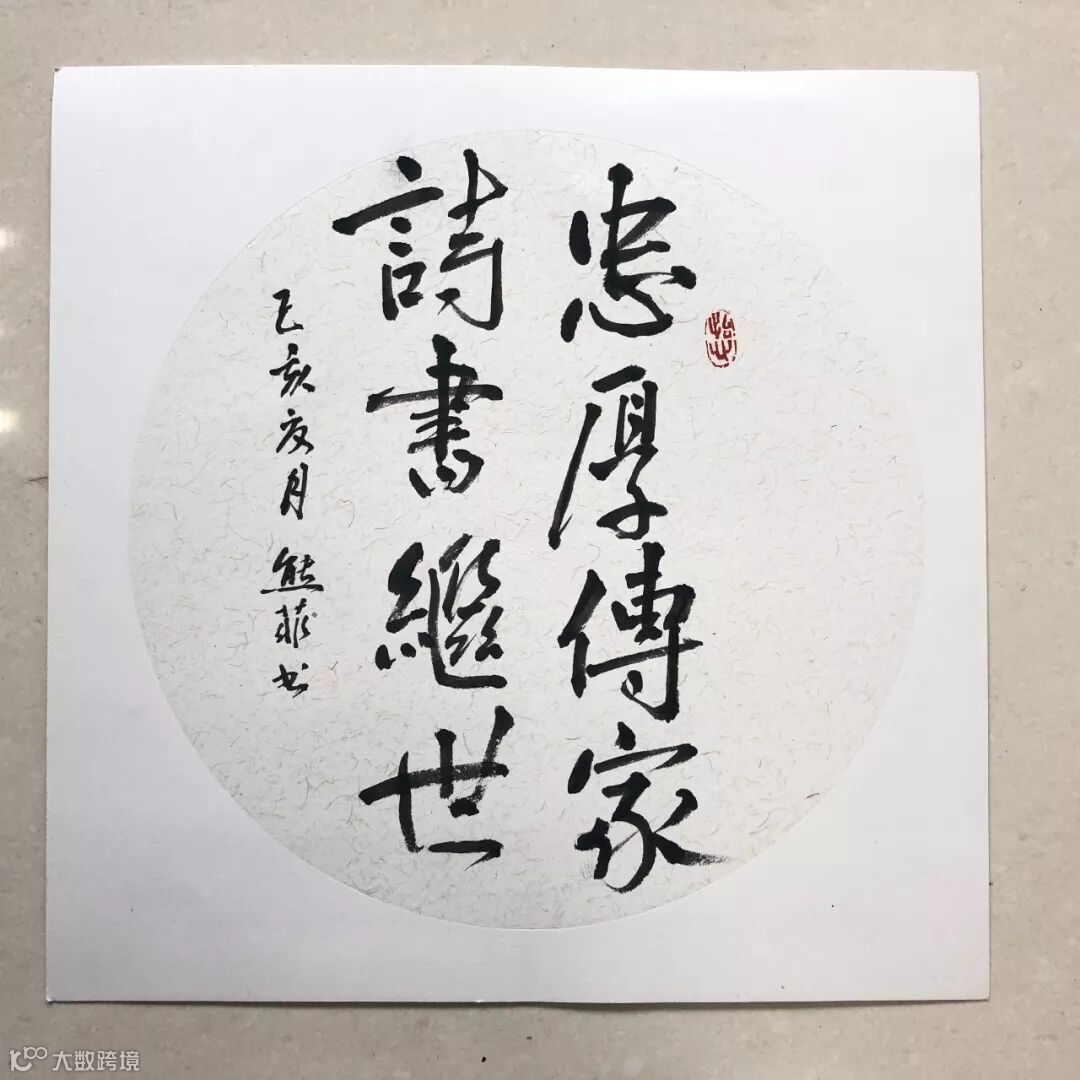 忠厚傳家
詩書繼世
己亥夏月 熊菲书
大数跨境